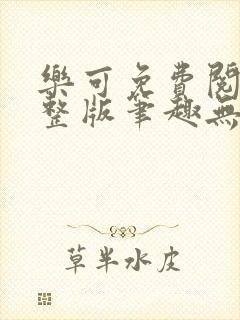 樂可免費閱
整版筆趣無
草半水皮